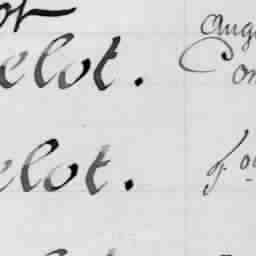 ot
elot. Aug
Con
elot. Fo